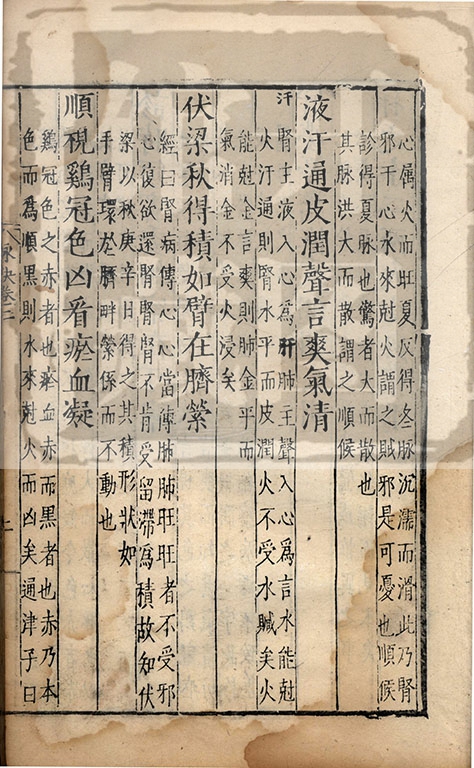 心屬火而旺夏反得冬脉沉濡而滑此乃腎
邪干心水來尅火謂之賊邪是可憂也順候
診得夏脉也驚者大而散也
其脉洪大而散謂之順候
液汗通皮潤聲言爽氣清
汗腎主液入心為肝肺主聲入心為言水能尅
火汗通則腎水平而皮潤火不受水贓矣火
能尅金言爽則肺金平而
氣消金不受火浸矣
伏梁秋得積如臂在臍縈
經曰腎病傳心心當傳肺肺旺旺者不受邪
心復欲還腎腎腎不肯受留滯為積故知伏
梁以秋庚辛日得之其積形狀如
手臂環於臍畔縈係而不動也
順視鷄冠色凶看瘀血凝
鷄冠色之赤者也瘀血赤而黑者也赤乃本
色而為順黑則水來尅火而凶矣通津子曰
脉訣卷二